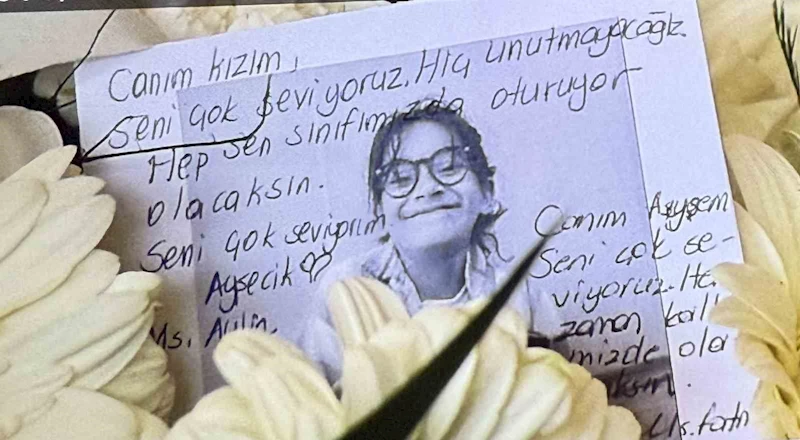 Canım kızım,
Seni çok seviyoruz. Hiç unutmayacağız.
Hep sen sınıfımızda oturuyor
olacaksın.
Seni çok seviyorum
Ayşecik
Ms. Aylin
Canım Ayşem
Seni çok se-
viyoruz. He
zaman kal
mizde ola
ksın.
Ms. fatn